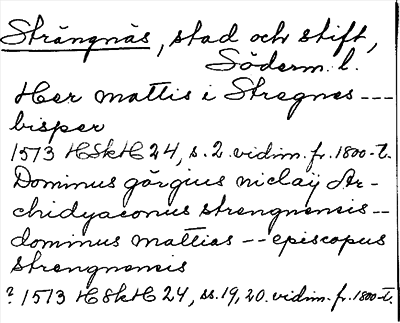 Strängnäs, stad och stift,
Söderm. l.
Her mattis i Stregnes ---
bisper
1513 HSkH 24, s. 2. vidim. fr. 1800-t.
Dominus görgius niclaÿ Ar-
chidyaconus strengnensis --
dominus mattias -- episcopus
strengnensis
? 1513 HSkH 24, ss. 19, 20. vidim. fr. 1800-t.